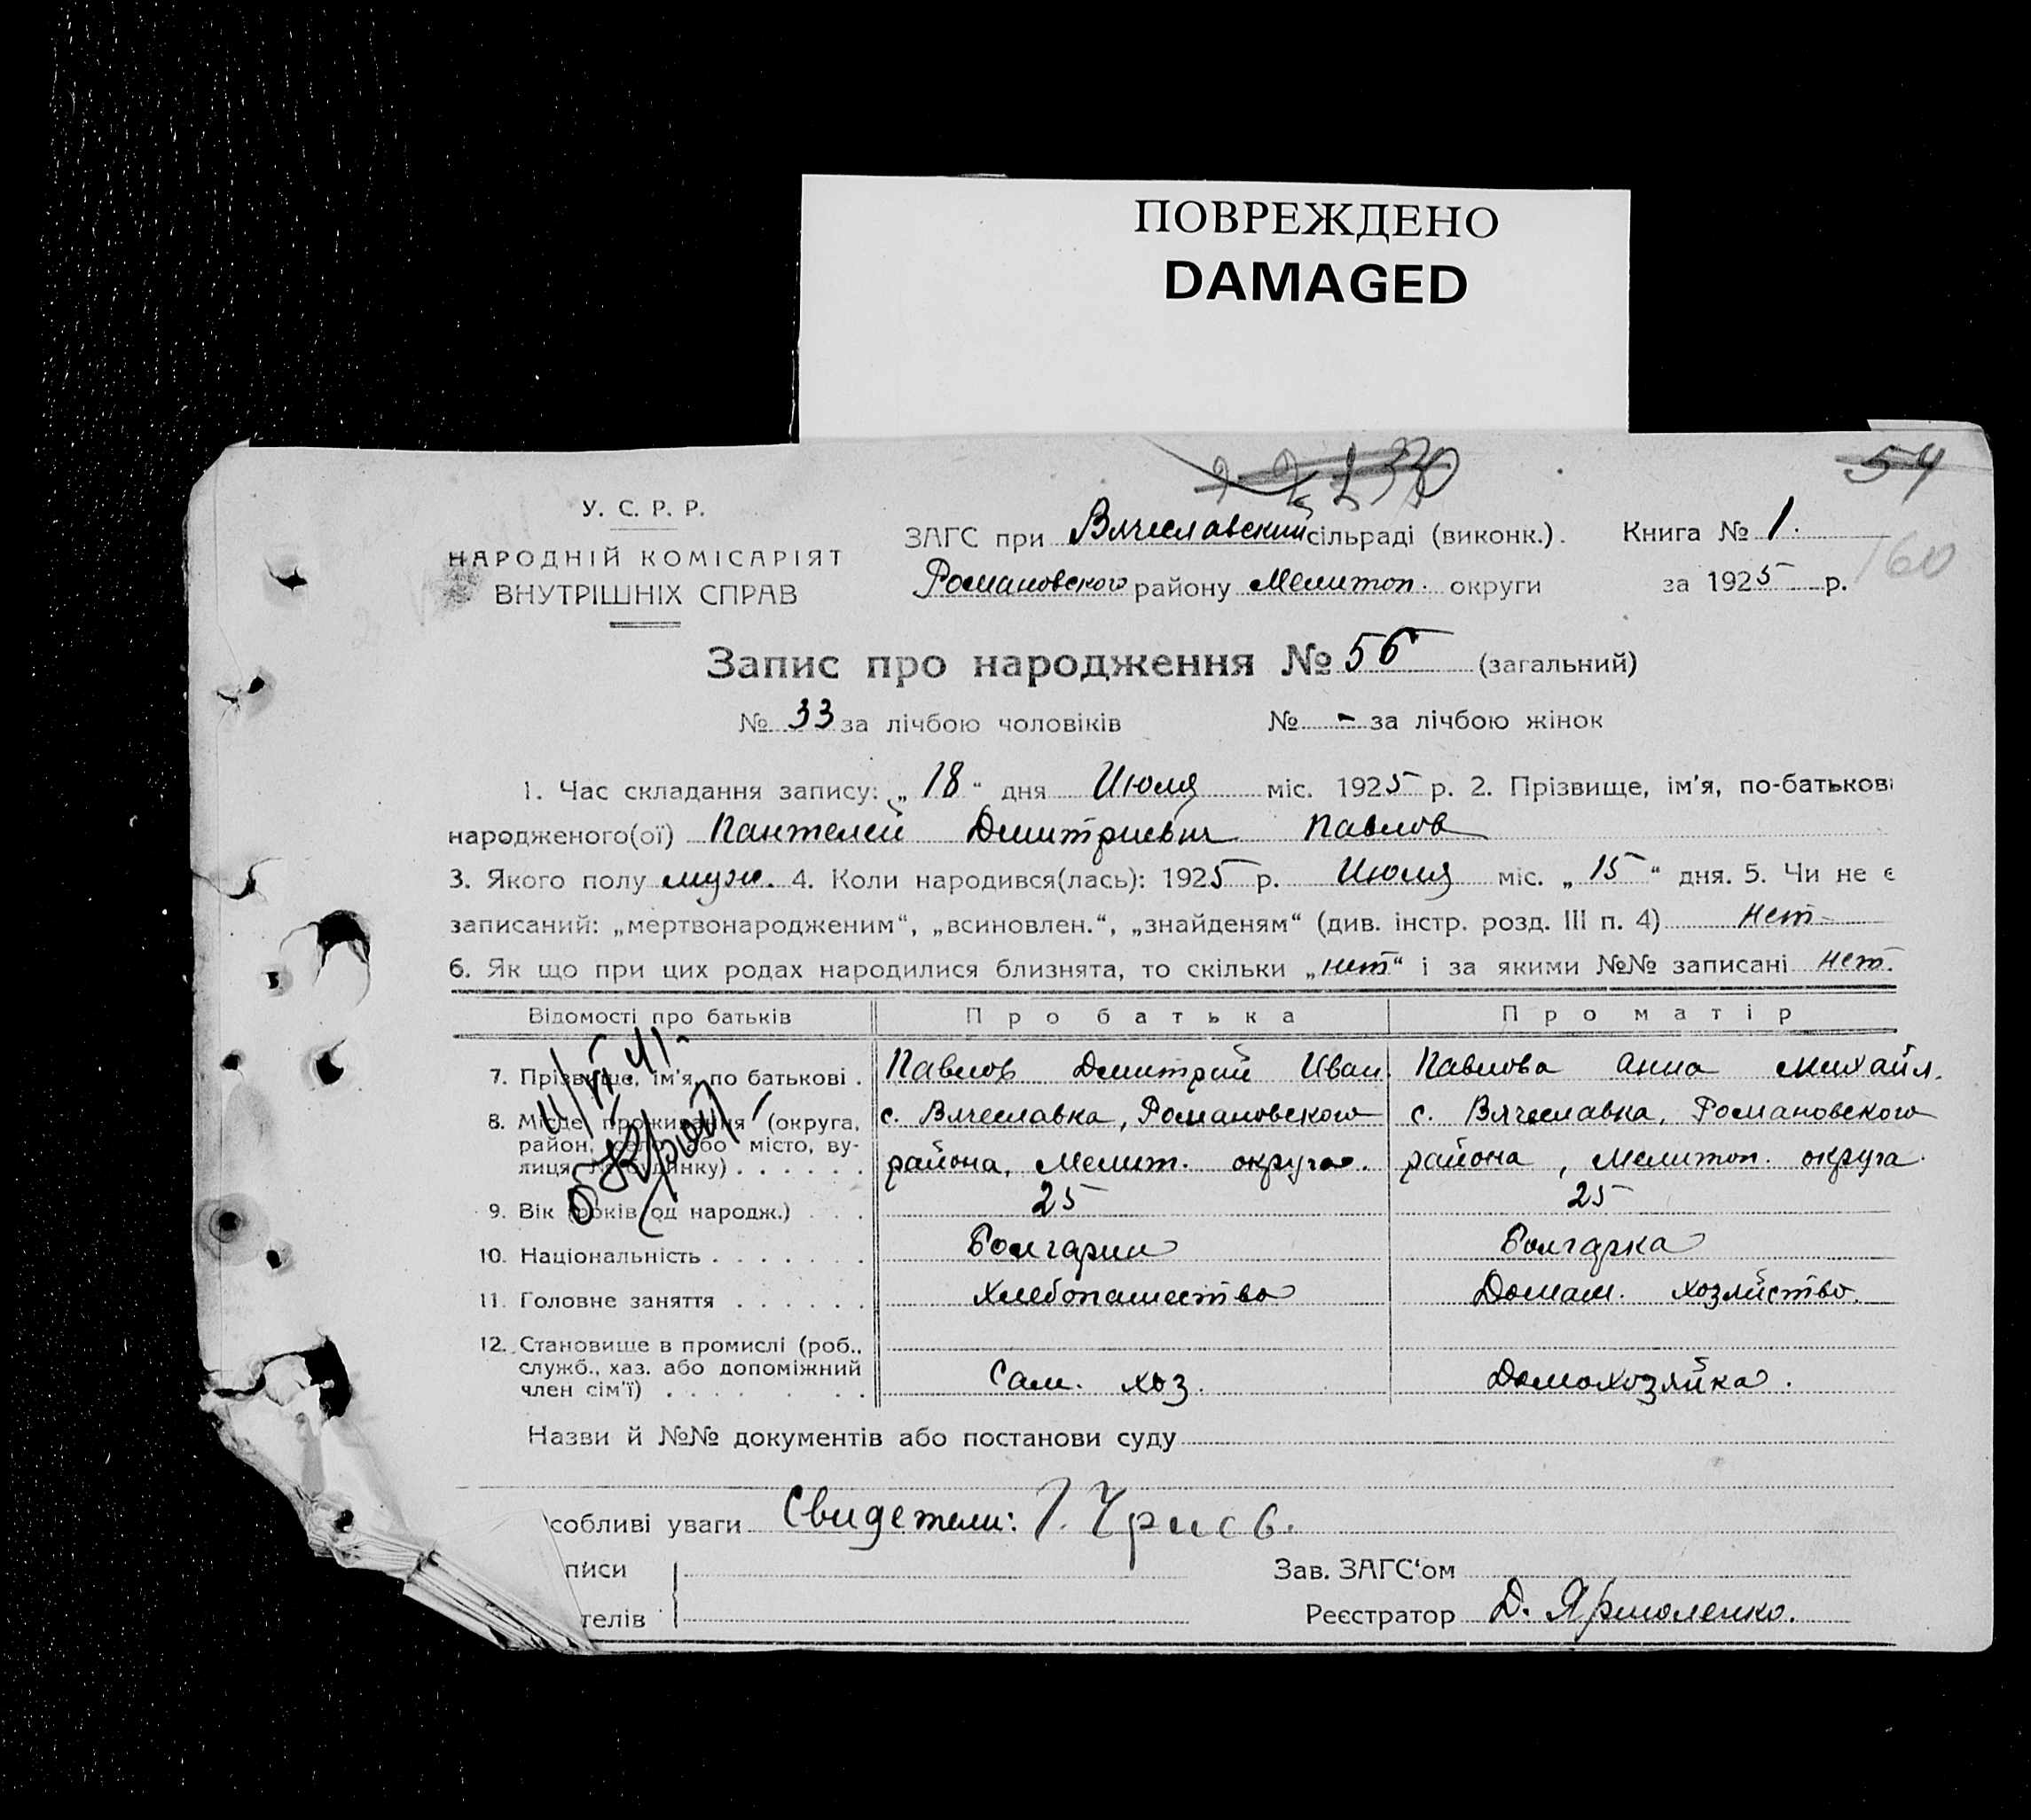 ПОВРЕЖДЕНО
DAMAGED
54
У. С. Р. Р.
НАРОДНІЙ КОМІСАРІЯТ
ВНУТРІШНІХ СПРАВ
ЗАГС при Вячеславский сільраді (виконк.). Книга № 1.
Романовского району Мелитоп. округи за 1925 р. 160
Запис про народження № 56 (загальний)
№ 33 за лічбою чоловіків № - за лічбою жінок
1. Час складання запису: „18“ дня Июля міс. 1925 р. 2. Прізвище, ім'я, по-батькові
народженого(ої) Пантелей Дмитриевич Павлов
3. Якого полу муж. 4. Коли народився(лась): 1925 р. Июля міс. „15“ дня. 5. Чи не є
записаний: „мертвонародженим“, „всиновлен.“, „знайденям“ (див. інстр. розд. III п. 4) нет
6. Як що при цих родах народилися близнята, то скільки „нет“ і за якими №№ записані нет.
Відомості про батьків Про батька Про матір
7. Прізвище, ім'я, по батькові . Павлов Дмитрий Иван Павлова Анна Михайл.
8. Місце проживання (округа, с. Вячеславка, Романовского с. Вячеславка, Романовского
район, село або місто, ву-
лиця, № будинку) . . . . . . района, Мелит. округа. района, Мелитоп. округа.
9. Вік (років од народж.) . . . 25 25
10. Національність . . . . . . . Болгарин Болгарка
11. Головне заняття . . . . . . Хлебопашество Домаш. хозяйство.
12. Становище в промислі (роб.,
служб., хаз. або допоміжний
член сім'ї) . . . . . . . Сам. хоз. Домохозяйка.
Назви й №№ документів або постанови суду
собливі уваги Свидетели:
писи Зав. ЗАГС‘ом
телів Реєстратор Д. Ярмоленко.